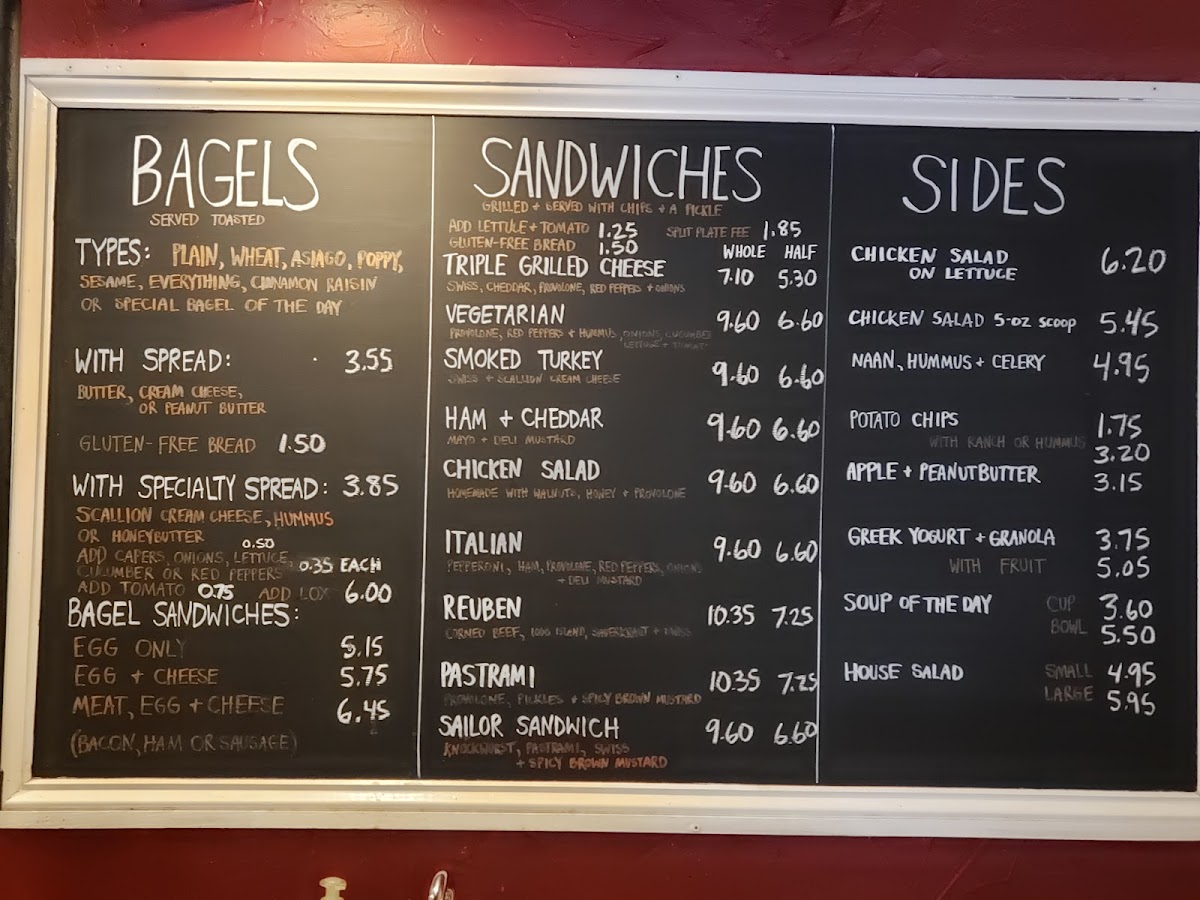 BAGELS
SERVED TOASTED
TYPES: PLAIN, WHEAT, ASIAGO, POPPY,
SESAME, EVERYTHING, CINNAMON RAISIN
OR SPECIAL BAGEL OF THE DAY
WITH SPREAD: 3.55
BUTTER, CREAM CHEESE,
OR PEANUT BUTTER
GLUTEN-FREE BREAD 1.50
WITH SPECIALTY SPREAD: 3.85
SCALLION CREAM CHEESE, HUMMUS
OR HONEYBUTTER
0.50
ADD CAPERS, ONIONS, LETTUCE
CUCUMBER OR RED PEPPERS 0.35 EACH
ADD TOMATO 0.75 ADD LOX 6.00
BAGEL SANDWICHES:
EGG ONLY 5.15
EGG + CHEESE 5.75
MEAT, EGG + CHEESE 6.45
(BACON, HAM OR SAUSAGE)
SANDWICHES
GRILLED + SERVED WITH CHIPS + A PICKLE
ADD LETTUCE + TOMATO 1.25 SPLIT PLATE FEE 1.85
GLUTEN-FREE BREAD 1.50 WHOLE HALF
TRIPLE GRILLED CHEESE 7.10 5.30
SWISS, CHEDDAR, PROVOLONE, RED PEPPERS + ONIONS
VEGETARIAN 9.60 6.60
PROVOLONE, RED PEPPERS + HUMMUS, ONIONS, CUCUMBER
LETTUCE + TOMATO
SMOKED TURKEY 9.60 6.60
SWISS + SCALLION CREAM CHEESE
HAM + CHEDDAR 9.60 6.60
MAYO + DELI MUSTARD
CHICKEN SALAD 9.60 6.60
HOMEMADE WITH WALNUTS, HONEY + PROVOLONE
ITALIAN 9.60 6.60
PEPPERONI, HAM, PROVOLONE, RED PEPPERS, ONIONS
+ DELI MUSTARD
REUBEN 10.35 7.25
CORNED BEEF, 1000 ISLAND, SAUERKRAUT + SWISS
PASTRAMI 10.35 7.25
PROVOLONE, PICKLES + SPICY BROWN MUSTARD
SAILOR SANDWICH 9.60 6.60
KNOCKWURST, PASTRAMI, SWISS
+ SPICY BROWN MUSTARD
SIDES
CHICKEN SALAD 6.20
ON LETTUCE
CHICKEN SALAD 5-OZ SCOOP 5.45
NAAN, HUMMUS + CELERY 4.95
POTATO CHIPS 1.75
WITH RANCH OR HUMMUS 3.20
APPLE + PEANUTBUTTER 3.15
GREEK YOGURT + GRANOLA 3.75
WITH FRUIT 5.05
SOUP OF THE DAY CUP 3.60
BOWL 5.50
HOUSE SALAD SMALL 4.95
LARGE 5.95